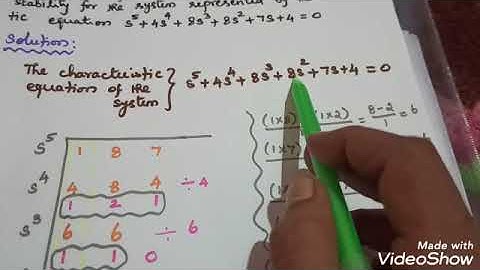 stability for the system represented by
tic equation s⁵+4s⁴+8s³+8s²+7s+4=0
Solution:
The characteristic
equations of the
system } s⁵+4s⁴+8s³+8s²+7s+4=0
s⁵ 1 8 7
s⁴ 4 8 4 ÷4
1 2 1
s³ 6 6 ÷6
1 1 0
(1×8) (1×2) = 8-2/1 = 6
(1×7)
Made with
VideoShow